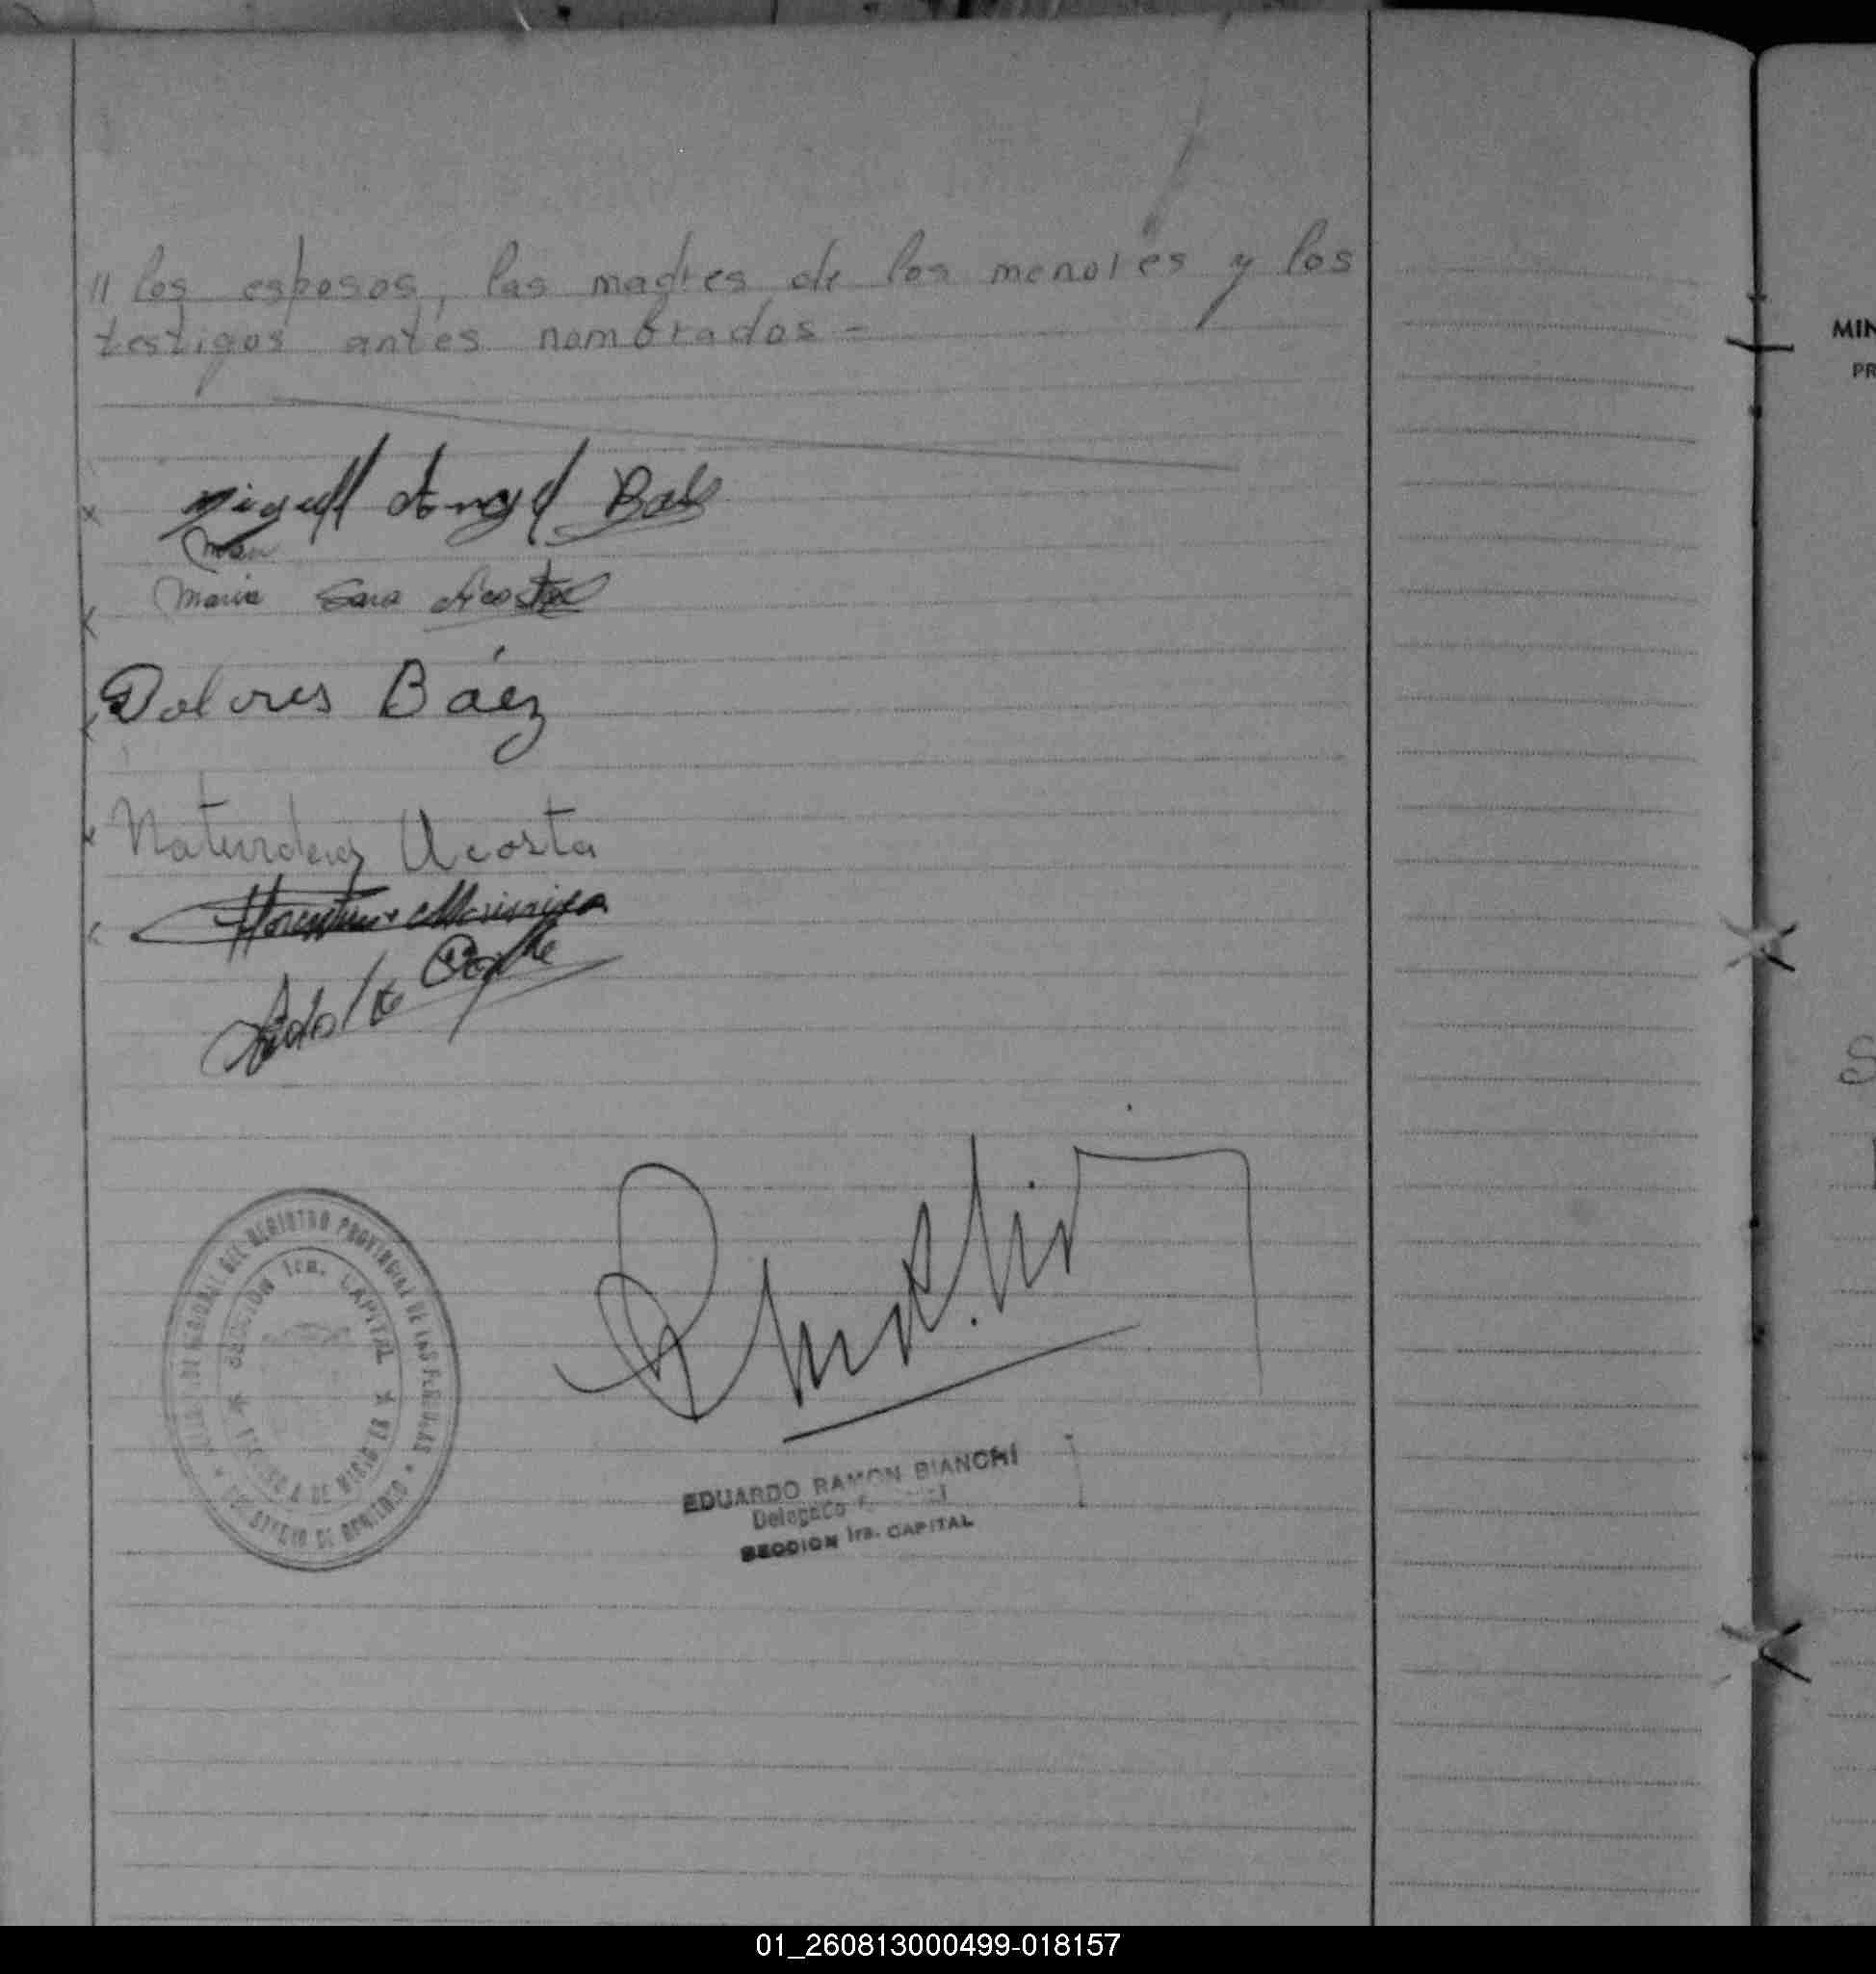 // los esposos, las madres de los menores y los
testigos antes nombrados -
x Miguel Angel
Maria
x Maria Sara Acosta
x Dolores Báez
x Acosta
Adolfo
DEL REGISTRO PROVINCIAL DE LAS PERSONAS
SECCION 1ra. CAPITAL
MINISTERIO DE GOBIERNO
EDUARDO RAMON BIANCHI
Delegado
SECCION 1ra. CAPITAL
MIN
PR
S
01_260813000499-018157